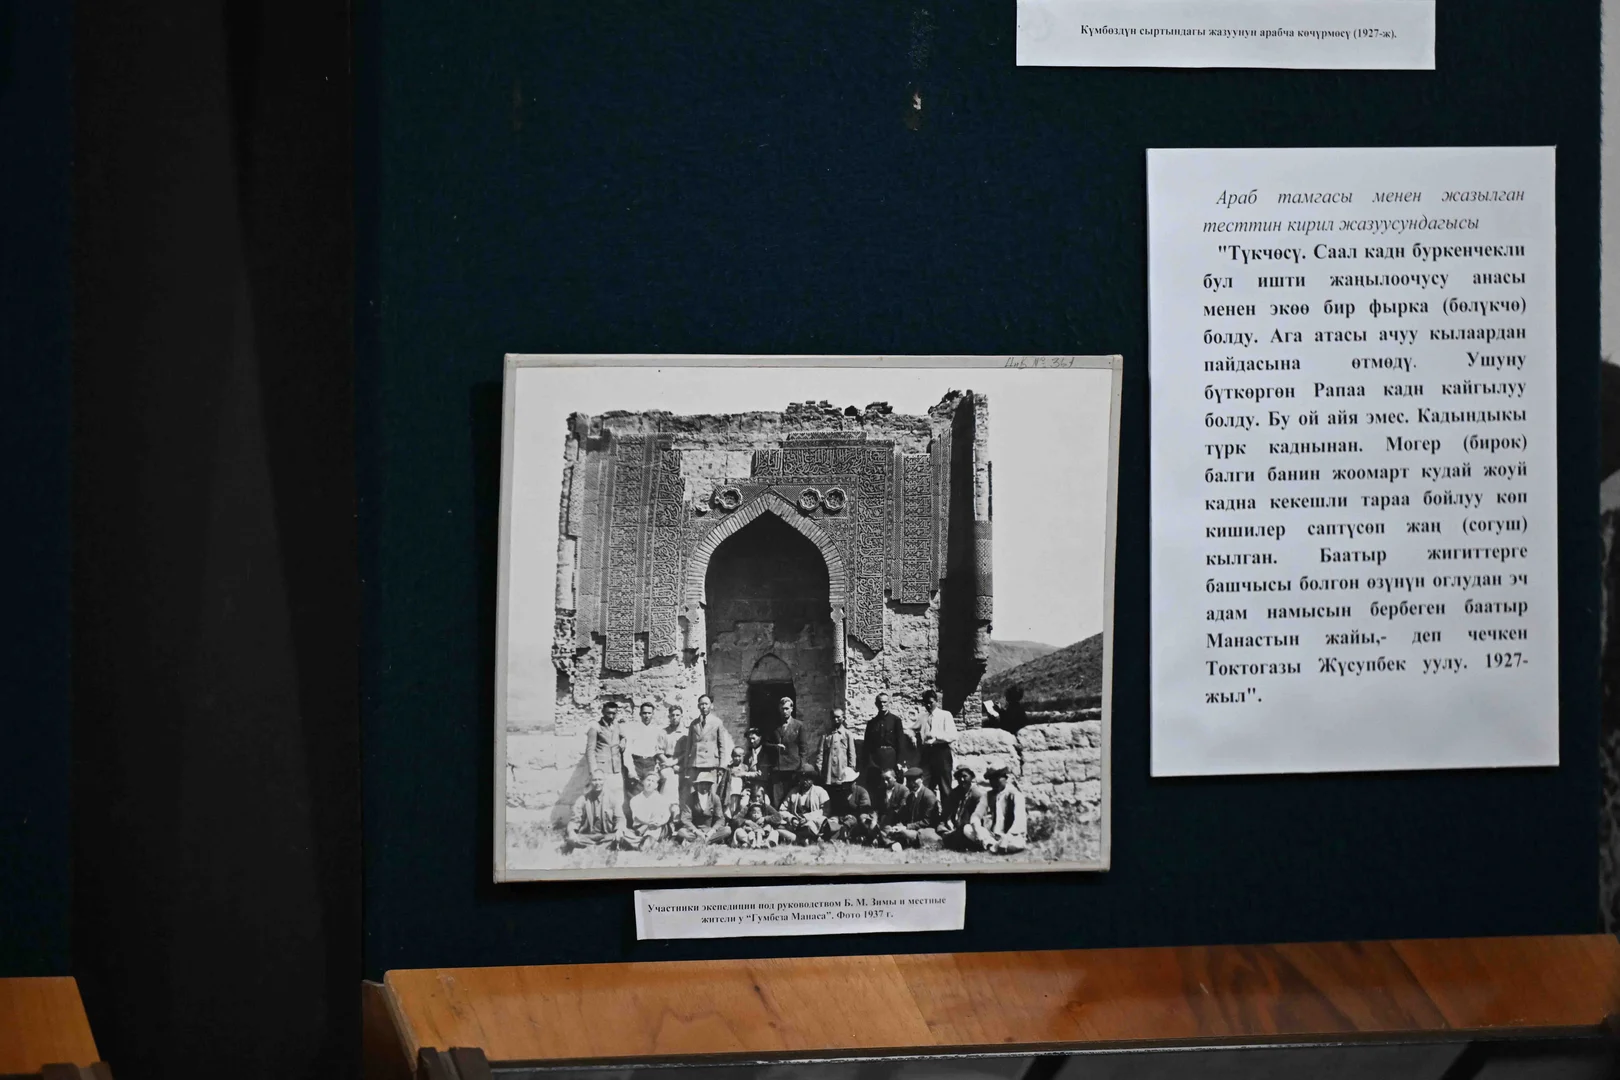 Күмбөздүн сыртындагы жазуунун арабча көчүрмөсү (1927-ж).
Араб тамгасы менен жазылган
тесттин кирил жазуусундагысы
"Түкчөсү. Саал кадн буркенчекли
бул ишти жаңылоочусу анасы
менен экөө бир фырка (бөлүкчө)
болду. Ага атасы ачуу кылаардан
пайдасына өтмөдү. Ушуну
бүткөргөн Рапаа кадн кайгылуу
болду. Бу ой айя эмес. Кадындыкы
түрк каднынан. Могер (бирок)
балги банин жоомарт кудай жоуй
кадна кекешли тараа бойлуу көп
кишилер саптүсөп жаң (согуш)
кылган. Баатыр жигиттерге
башчысы болгон өзүнүн оглудан эч
адам намысын бербеген баатыр
Манастын жайы,- деп чечкен
Токтогазы Жүсупбек уулу. 1927-
жыл".
Инв № 361
Участники экспедиции под руководством Б. М. Зимы и местные
жители у “Гумбеза Манаса”. Фото 1937 г.